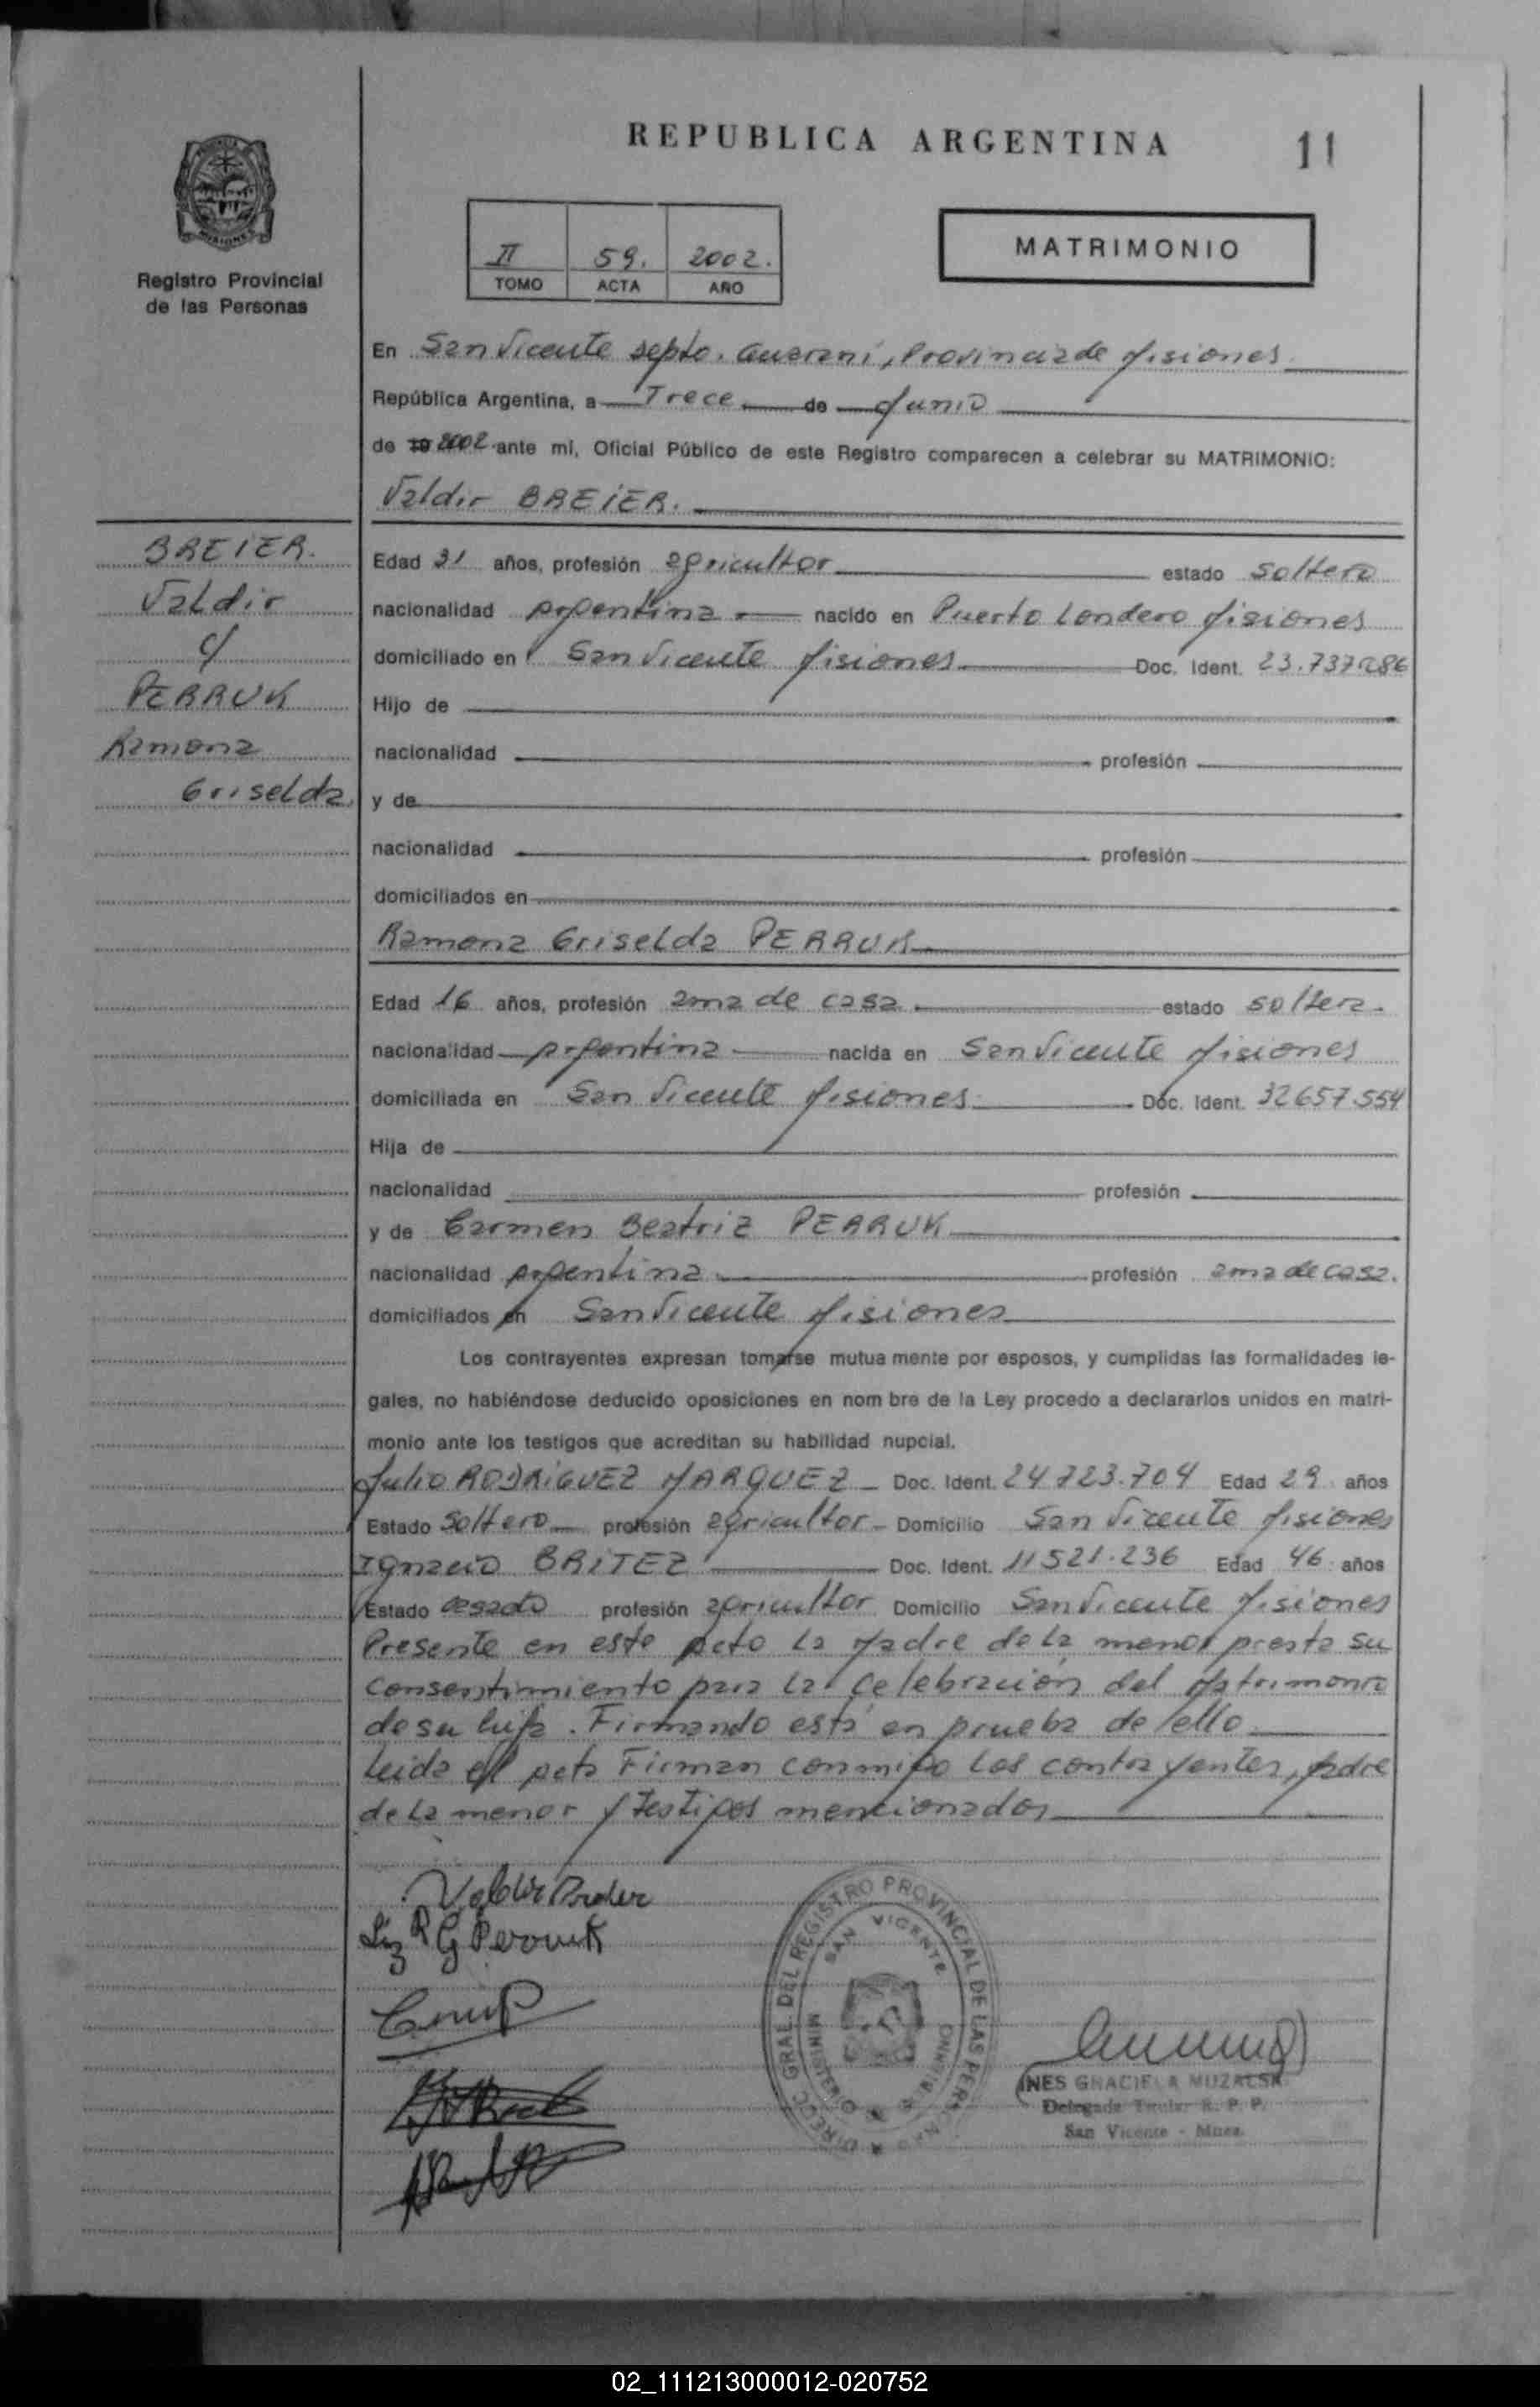 REPUBLICA ARGENTINA
11
MISIONES
Registro Provincial
de las Personas
II 59. 2002.
TOMO ACTA AÑO
MATRIMONIO
En San Vicente Depto. Guaraní, Provincia de Misiones
República Argentina, a Trece de Junio
de 19 2002 ante mí, Oficial Público de este Registro comparecen a celebrar su MATRIMONIO:
Valdir BREIER.
BREIER.
Valdir
c/
PERRUK
Ramona
Griselda
Edad 31 años, profesión agricultor estado soltero
nacionalidad Argentina nacido en Puerto Londero Misiones
domiciliado en San Vicente Misiones Doc. Ident. 23.737.286
Hijo de
nacionalidad profesión
y de
nacionalidad profesión
domiciliados en
Ramona Griselda PERRUK
Edad 16 años, profesión ama de casa estado soltera
nacionalidad Argentina nacida en San Vicente Misiones
domiciliada en San Vicente Misiones Doc. Ident. 32657.554
Hija de
nacionalidad profesión
y de Carmen Beatriz PERRUK
nacionalidad Argentina profesión ama de casa.
domiciliados en San Vicente Misiones
Los contrayentes expresan tomarse mutua mente por esposos, y cumplidas las formalidades le-
gales, no habiéndose deducido oposiciones en nom bre de la Ley procedo a declararlos unidos en matri-
monio ante los testigos que acreditan su habilidad nupcial.
Julio RODRIGUEZ MARQUEZ Doc. Ident. 24.723.704 Edad 29 años
Estado Soltero profesión agricultor Domicilio San Vicente Misiones
Ignacio BRITEZ Doc. Ident. 11521.236 Edad 46 años
Estado casado profesión agricultor Domicilio San Vicente Misiones
Presente en este Acto la Madre de la menor presta su
consentimiento para la celebración del Matrimonio
de su hija. Firmando está en prueba de ello
Leida el Acta Firman conmigo los contrayentes, Madre
de la menor y testigos mencionados
Valdir Breier
R G Perruk
DIREC. GRAL. DEL REGISTRO PROVINCIAL DE LAS PERSONAS
SAN VICENTE
INES GRACIELA MUZALSKI
Delegada Titular R. P. P.
San Vicente - Mnes.
02_111213000012-020752